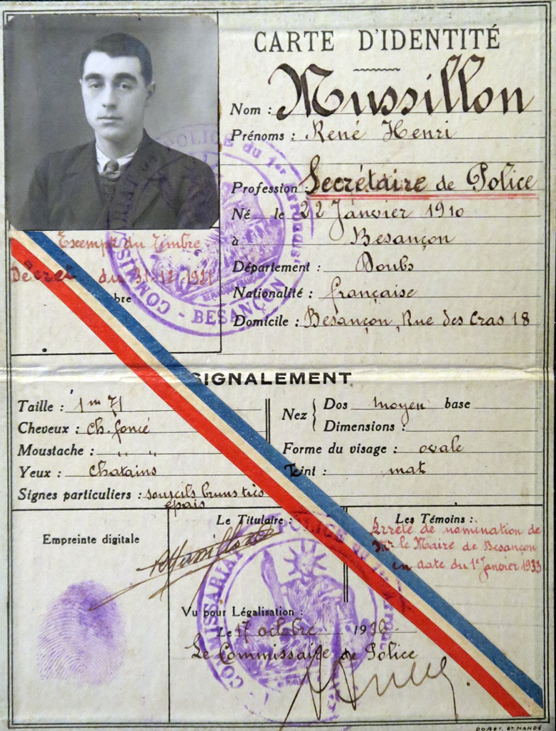 CARTE D'IDENTITÉ
Nom : Mussillon
Prénoms : René Henri
Profession : Secrétaire de Police
Né le 22 Janvier 1910
à Besançon
Département : Doubs
Nationalité : française
Domicile : Besançon, Rue des Cras 18
Exempt du Timbre
Décret du 31-12
bre
COMMISSARIAT DE POLICE du 1er Arrondis - BESANÇON -
SIGNALEMENT
Taille : 1m 71
Cheveux : ch. foncé
Moustache : " "
Yeux : chatains
Signes particuliers : sourcils bruns très
épais
Nez { Dos moyen base
Dimensions :
Forme du visage : ovale
Teint : mat
Empreinte digitale
Le Titulaire :
Mussillon
Les Témoins :
Arrêté de nomination de
Mr le Maire de Besançon
en date du 1er Janvier 1933
Vu pour Légalisation :
Le 17 octobre 1936
Le Commissaire de Police